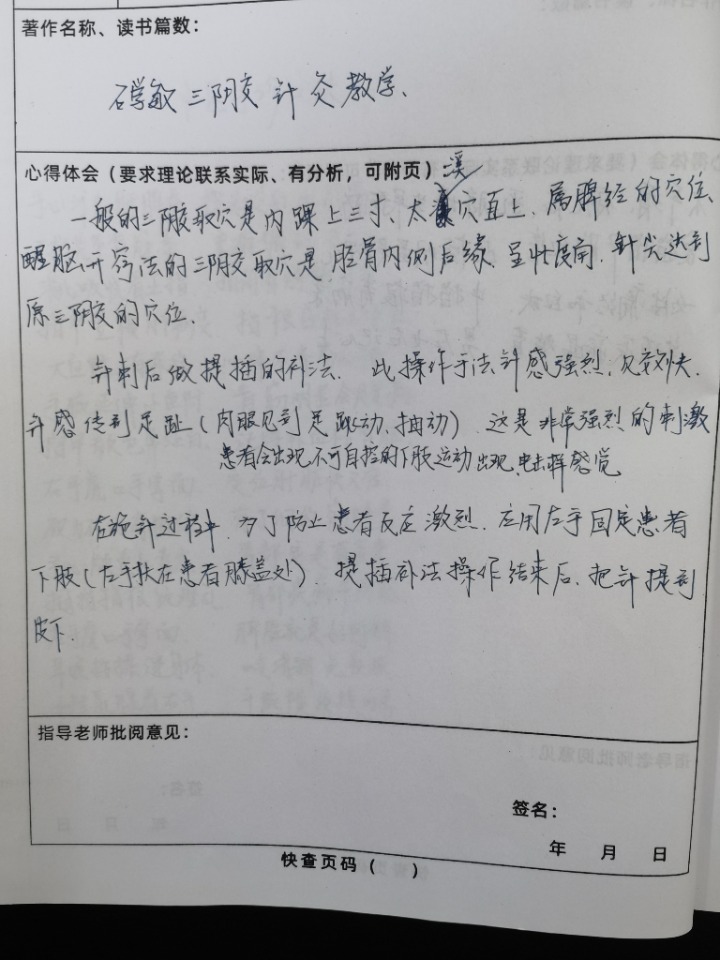 著作名称、读书篇数：
石学敏三阴交针灸教学、
心得体会（要求理论联系实际、有分析，可附页） 溪
一般的三阴交取穴是内踝上三寸，太穴直上，属脾经的穴位、
醒脑开窍法的三阴交取穴是，胫骨内侧后缘，呈45度角，针尖达到
原三阴交的穴位、
针刺后做提插的补法、 此操作手法针感强烈，见效快、
针感传到足趾（肉眼见到足跳动、抽动），这是非常强烈的刺激
患者会出现不可自控的下肢运动出现电击样感觉
在施针过程中，为了防止患者反应激烈，应用左手固定患者
下肢（左手扶在患者膝盖处），提插补法操作结束后，把针提到
皮下．
指导老师批阅意见：
签名：
年 月 日
快查页码（ ）